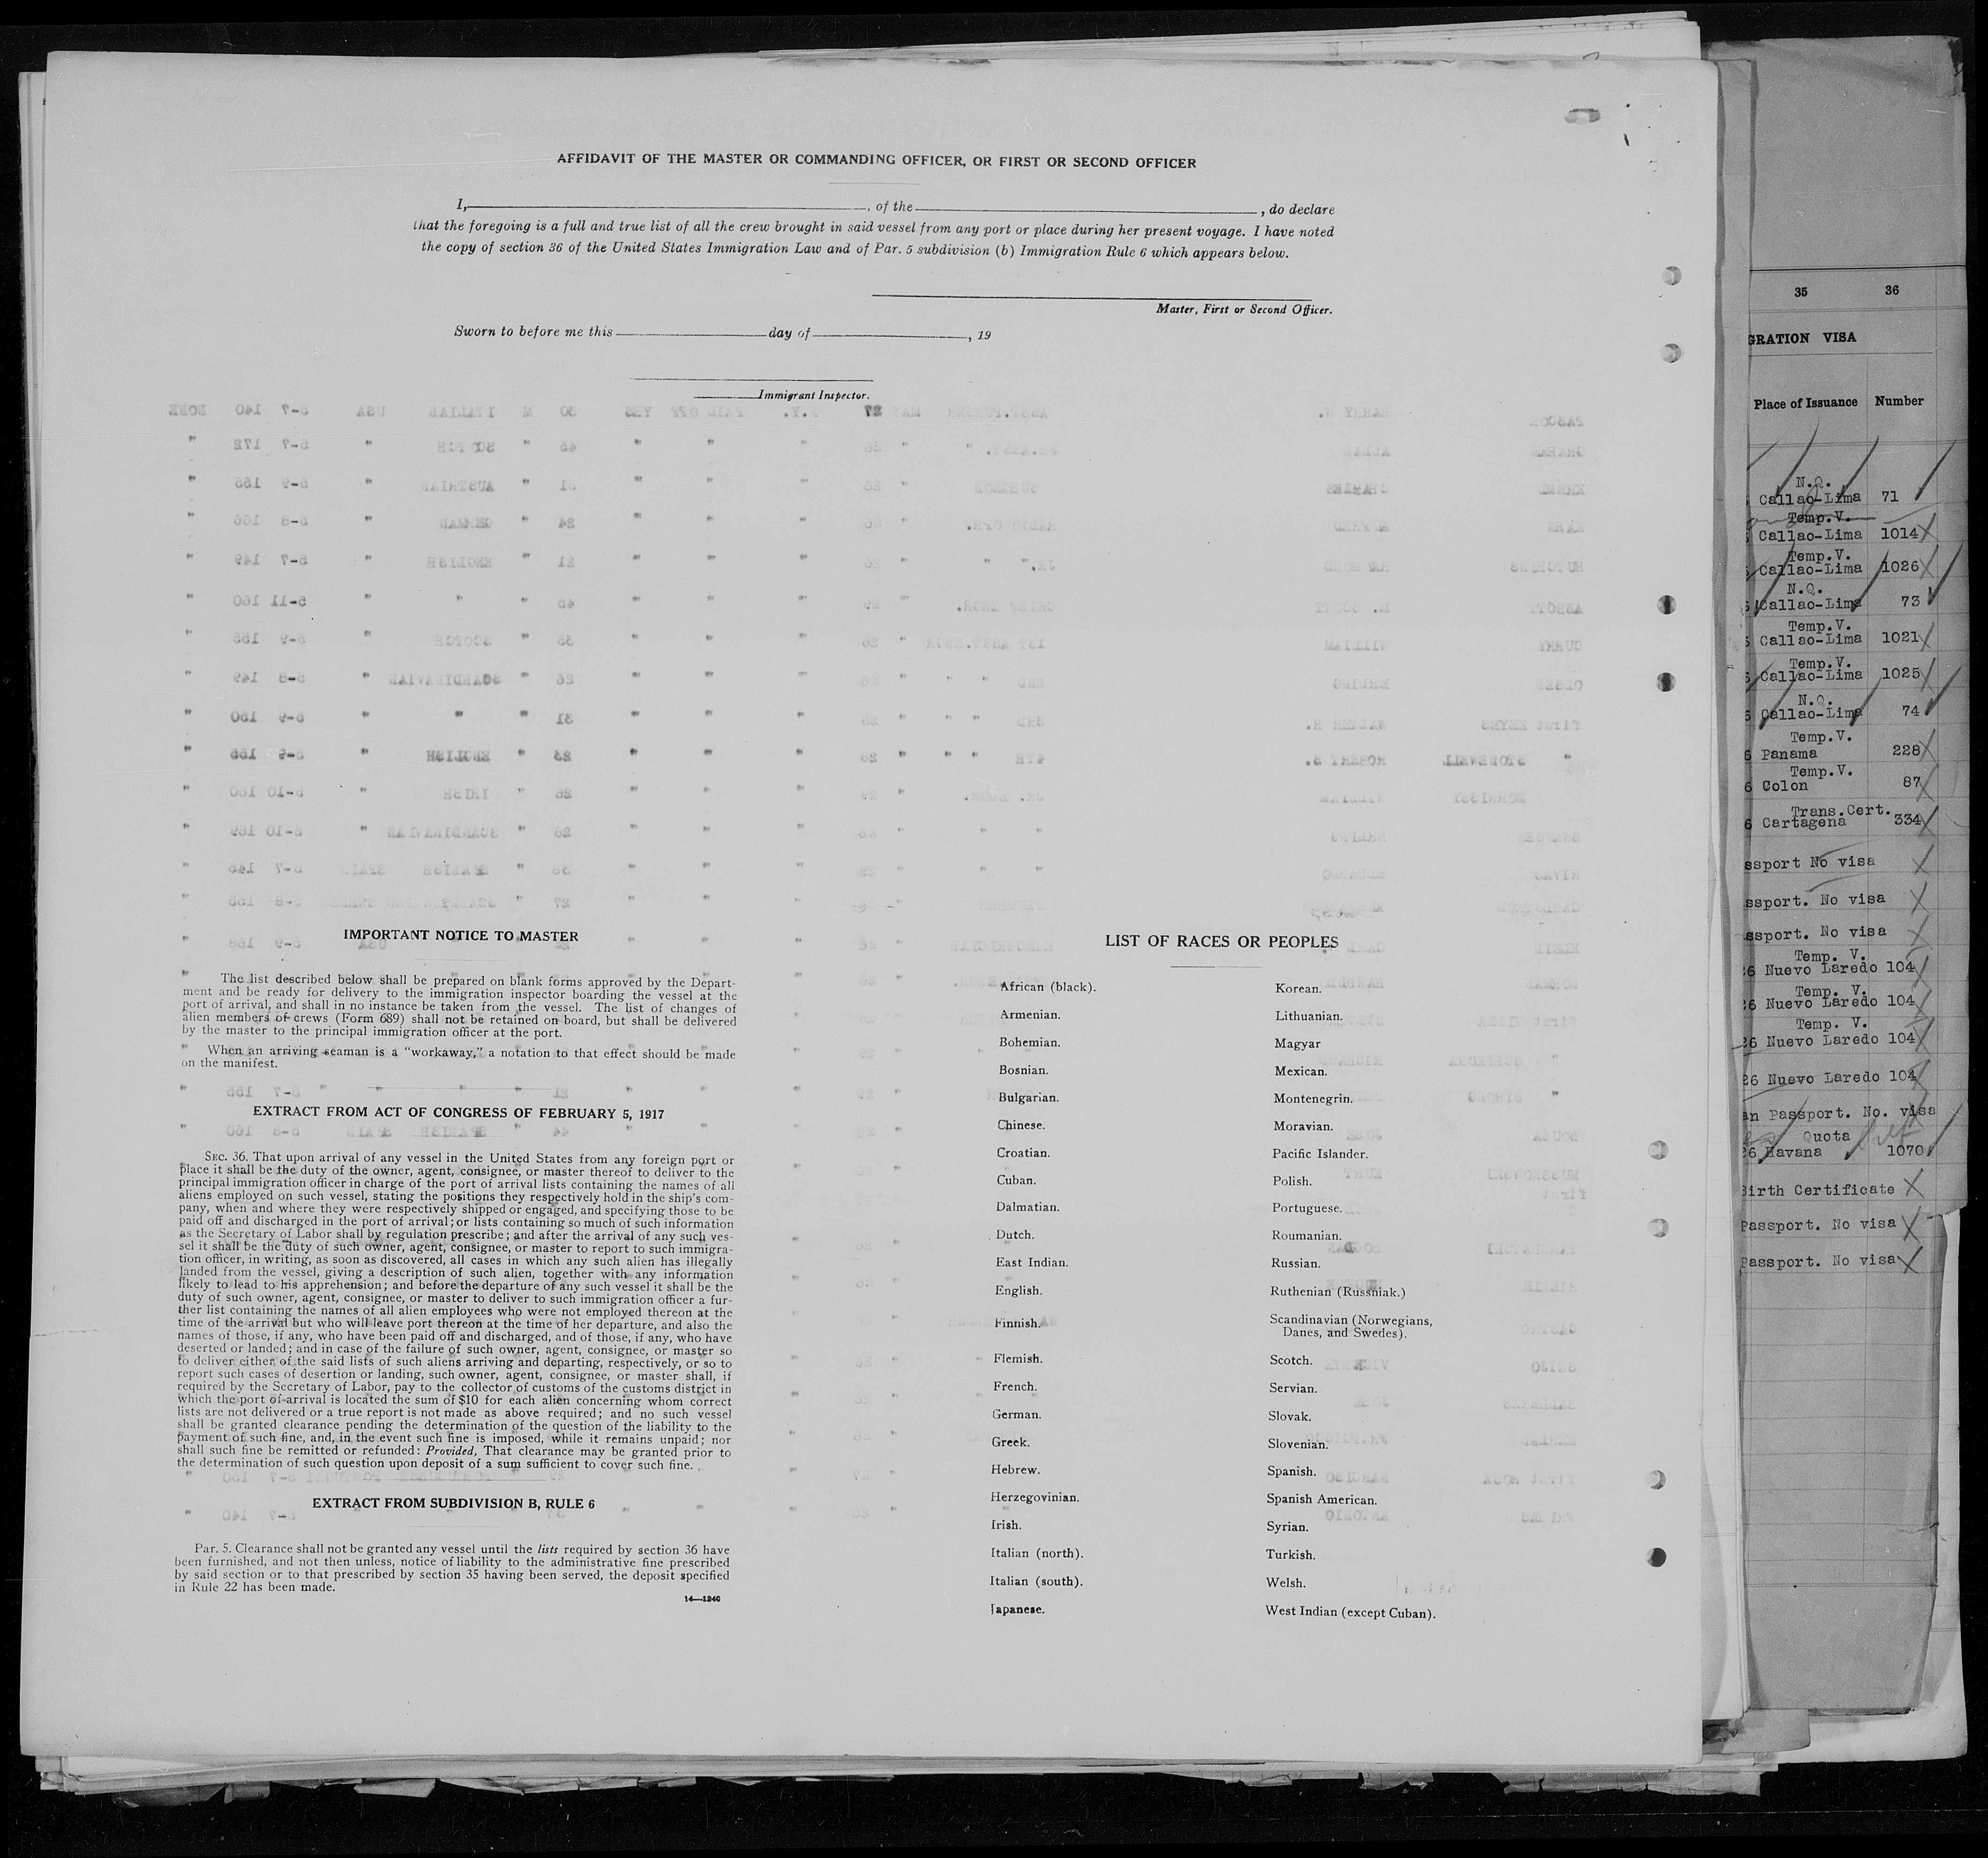 AFFIDAVIT OF THE MASTER OR COMMANDING OFFICER, OR FIRST OR SECOND OFFICER
I, , of the , do declare
that the foregoing is a full and true list of all the crew brought in said vessel from any port or place during her present voyage. I have noted
the copy of section 36 of the United States Immigration Law and of Par. 5 subdivision (b) Immigration Rule 6 which appears below.
Master, First or Second Officer.
Sworn to before me this day of , 19
Immigrant Inspector.
IMPORTANT NOTICE TO MASTER
The list described below shall be prepared on blank forms approved by the Depart-
ment and be ready for delivery to the immigration inspector boarding the vessel at the
port of arrival, and shall in no instance be taken from the vessel. The list of changes of
alien members of crews (Form 689) shall not be retained on board, but shall be delivered
by the master to the principal immigration officer at the port.
When an arriving seaman is a "workaway," a notation to that effect should be made
on the manifest.
EXTRACT FROM ACT OF CONGRESS OF FEBRUARY 5, 1917
SEC. 36. That upon arrival of any vessel in the United States from any foreign port or
place it shall be the duty of the owner, agent, consignee, or master thereof to deliver to the
principal immigration officer in charge of the port of arrival lists containing the names of all
aliens employed on such vessel, stating the positions they respectively hold in the ship's com-
pany, when and where they were respectively shipped or engaged, and specifying those to be
paid off and discharged in the port of arrival; or lists containing so much of such information
as the Secretary of Labor shall by regulation prescribe; and after the arrival of any such ves-
sel it shall be the duty of such owner, agent, consignee, or master to report to such immigra-
tion officer, in writing, as soon as discovered, all cases in which any such alien has illegally
landed from the vessel, giving a description of such alien, together with any information
likely to lead to his apprehension; and before the departure of any such vessel it shall be the
duty of such owner, agent, consignee, or master to deliver to such immigration officer a fur-
ther list containing the names of all alien employees who were not employed thereon at the
time of the arrival but who will leave port thereon at the time of her departure, and also the
names of those, if any, who have been paid off and discharged, and of those, if any, who have
deserted or landed; and in case of the failure of such owner, agent, consignee, or master so
to deliver either of the said lists of such aliens arriving and departing, respectively, or so to
report such cases of desertion or landing, such owner, agent, consignee, or master shall, if
required by the Secretary of Labor, pay to the collector of customs of the customs district in
which the port of arrival is located the sum of $10 for each alien concerning whom correct
lists are not delivered or a true report is not made as above required; and no such vessel
shall be granted clearance pending the determination of the question of the liability to the
payment of such fine, and, in the event such fine is imposed, while it remains unpaid; nor
shall such fine be remitted or refunded: Provided, That clearance may be granted prior to
the determination of such question upon deposit of a sum sufficient to cover such fine.
EXTRACT FROM SUBDIVISION B, RULE 6
Par. 5. Clearance shall not be granted any vessel until the lists required by section 36 have
been furnished, and not then unless, notice of liability to the administrative fine prescribed
by said section or to that prescribed by section 35 having been served, the deposit specified
in Rule 22 has been made.
14—1240
LIST OF RACES OR PEOPLES
African (black).
Armenian.
Bohemian.
Bosnian.
Bulgarian.
Chinese.
Croatian.
Cuban.
Dalmatian.
Dutch.
East Indian.
English.
Finnish.
Flemish.
French.
German.
Greek.
Hebrew.
Herzegovinian.
Irish.
Italian (north).
Italian (south).
Japanese.
Korean.
Lithuanian.
Magyar
Mexican.
Montenegrin.
Moravian.
Pacific Islander.
Polish.
Portuguese.
Roumanian.
Russian.
Ruthenian (Russniak.)
Scandinavian (Norwegians,
Danes, and Swedes).
Scotch.
Servian.
Slovak.
Slovenian.
Spanish.
Spanish American.
Syrian.
Turkish.
Welsh.
West Indian (except Cuban).
35 36
GRATION VISA
Place of Issuance Number
N.Q.
Callao-Lima 71
Temp.V.
Callao-Lima 1014
Temp.V.
Callao-Lima 1026
N.Q.
Callao-Lima 73
Temp.V.
Callao-Lima 1021
Temp.V.
Callao-Lima 1025
N.Q.
Callao-Lima 74
Temp.V.
6 Panama 228
Temp.V.
6 Colon 87
Trans.Cert.
6 Cartagena 334
ssport No visa
ssport. No visa
ssport. No visa
Temp. V.
26 Nuevo Laredo 104
Temp. V.
26 Nuevo Laredo 104
Temp. V.
26 Nuevo Laredo 104
26 Nuevo Laredo 104
an Passport. No. visa
Quota
26 Havana 1070
Birth Certificate
Passport. No visa
Passport. No visa